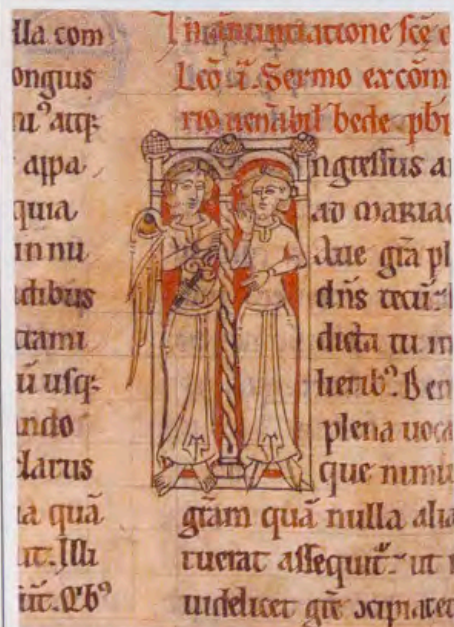 lla com
ongius
ru⁹ atq;
appa
quia
in nu
dibus
tami
ū usq;
ndo
larus
ia quā
it. Illi
iit. Qb⁹
In annuntiatione sc̄e
Leō ı̄. Sermo ex cōm
rio uen̄abil bede pb̄i
ngressus a
ad maria
Aue gr̄a pl
dn̄s tecū
dicta tu in
lierib⁹. Ben
plena uoca
que nimi
gr̄am quā nulla alia
ruerat assequit̄ ut
uidelicet gr̄e